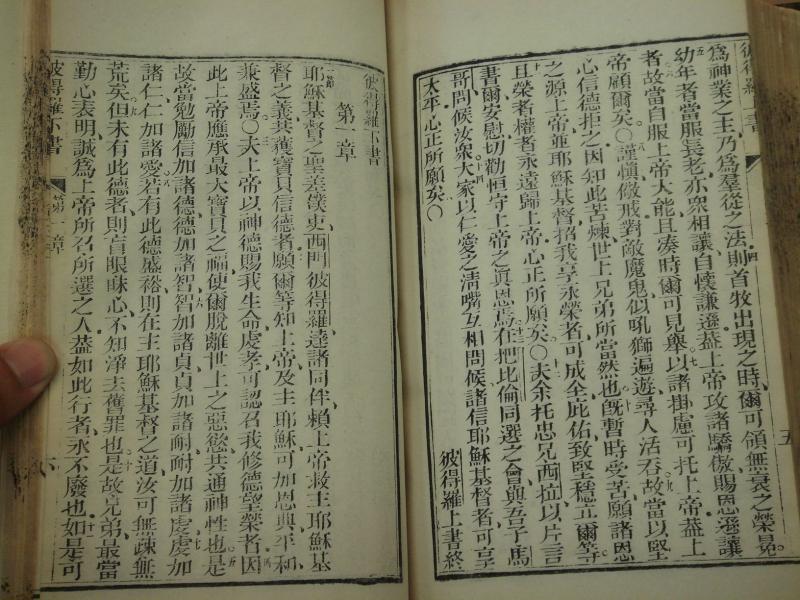 彼得羅上書
為神業之主乃為羣從之法則首牧出現之時爾可領無衰之榮
幼年者當服長老亦眾相讓自懷謙遜葢上帝攻諸驕傲賜恩遜讓
者故當自服上帝大能且凑時爾可見舉以諸掛慮可托上帝葢上
帝顧爾矣〇謹慎儆戒對敵魔鬼似吼獅遍遊尋人活吞故當以堅
心信德拒之因知此苦煉世上兄弟所當然也旣暫時受苦願諸恩
之源上帝並耶穌基督招我享永榮者可成全庇佑致堅穩立爾等
且榮者權者永遠歸上帝心正所願矣〇夫余托忠兄西拉以片言
書爾安慰切勸恒守上帝之眞恩焉在把比倫同選之會與吾子馬
哥問候汝眾大家以仁愛之淸嘴互相問候諸信耶穌基督者可享
太平心正所願矣〇
彼得羅上書終
五
彼得羅下書
第一章
耶穌基督之聖差僕吏西門彼得羅達諸同伴賴上帝救主耶穌基
督之義共獲寶貝信德者願爾等知上帝及主耶穌可加恩典平和
兼盛焉〇夫上帝以神德賜我生命虔孝可認召我修德望榮者因
此上帝應承最大寶貝之福使爾脫離世上之惡慾共通神性也是
故當勉勵信加諸德德加諸智智加諸貞貞加諸耐耐加諸虔虔加
諸仁仁加諸愛若有此德盛裕則在主耶穌基督之道汝可無疎無
荒矣但未有此德者則盲眼昧心不知淨去舊罪也是故兄弟最當
勤心表明誠為上帝所召所選之人葢如此行者永不廢也如是可
彼得羅下書
第一章
六